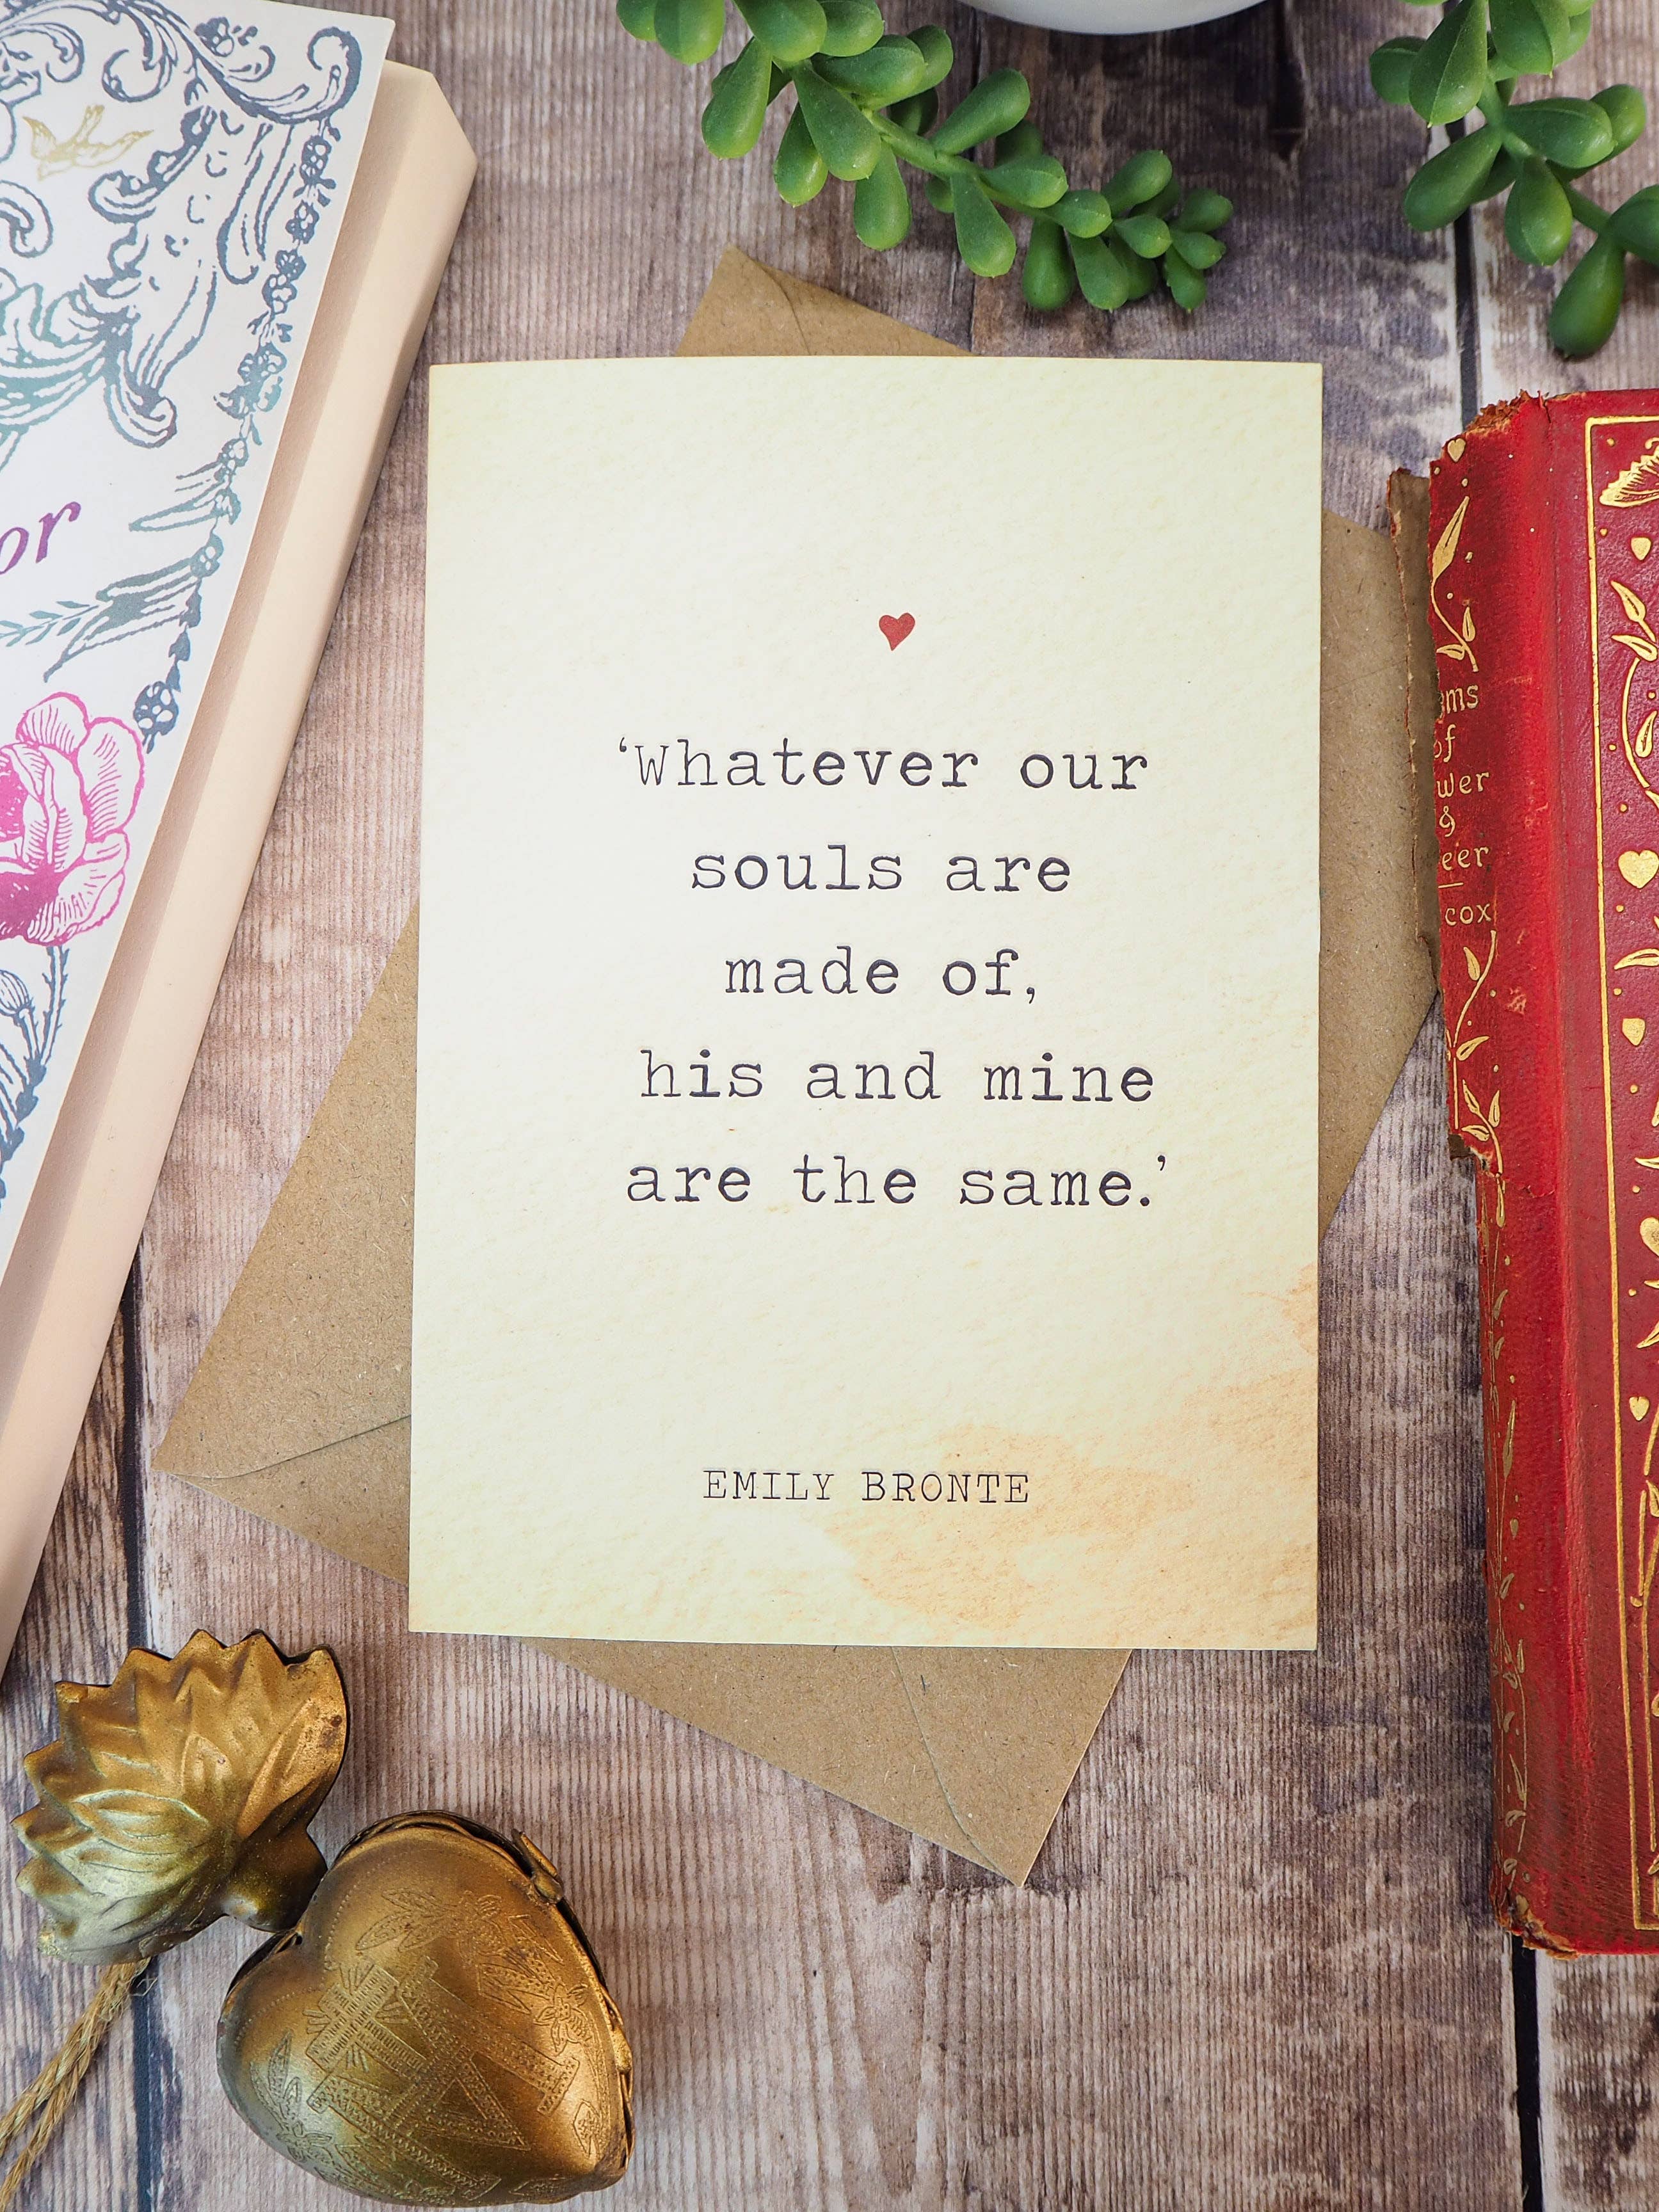 ‘Whatever our
souls are
made of,
his and mine
are the same.’
EMILY BRONTE
or
of
&